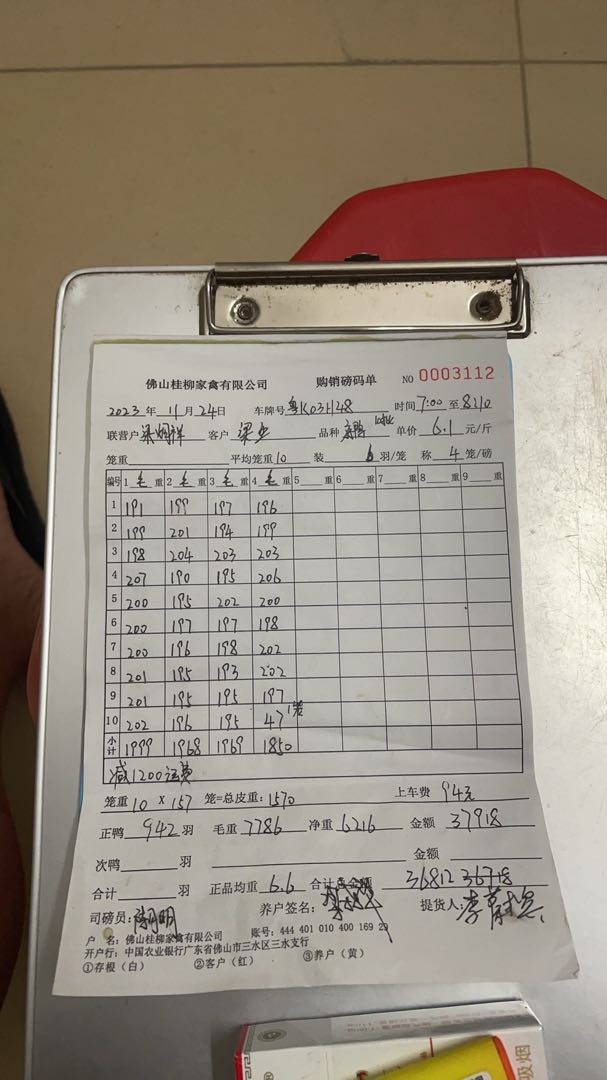 佛山桂柳家禽有限公司 购销磅码单 NO 0003112
2023年11月24日 车牌号粤K03H48 时间7:00至8:10
联营户 客户梁 品种 单价6.1元/斤
笼重 平均笼重10 装6羽/笼 称4笼/磅
编号 1毛重 2毛重 3毛重 4毛重 5重 6重 7重 8重 9重
1 191 199 197 196
2 199 201 194 199
3 198 204 203 203
4 207 190 195 206
5 200 195 202 200
6 200 197 197 198
7 200 196 198 202
8 201 195 193 202
9 201 195 195 197
10 202 196 195 47 1笼
小计 1999 1968 1969 1850
减1200运费
笼重10×157 笼=总皮重:1570 上车费94元
正鸭942羽 毛重7786 净重6216 金额37918
次鸭 羽 金额
合计 羽 正品均重6.6 合计总金额 36812 36718
司磅员:陈明明 养户签名: 提货人:李
户 名:佛山桂柳家禽有限公司 账号:444 401 010 400 169 29
开户行:中国农业银行广东省佛山市三水区三水支行
①存根(白) ②客户(红) ③养户(黄)
吸烟